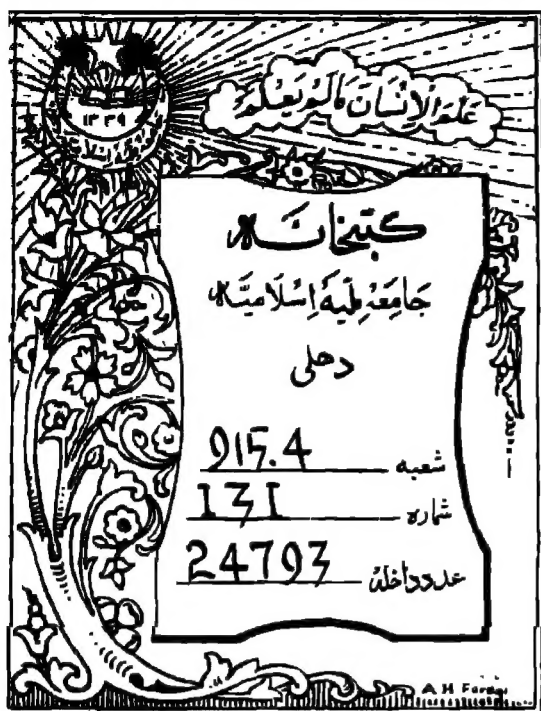 ۱۳۳۹
علم الإنسان ما لم يعلم
كتبخانه
جامعۂ ملیۂ اسلامیہ
دهلی
شعبه 915.4
شماره 131
عدد داخلہ 24793
A H Faruqi